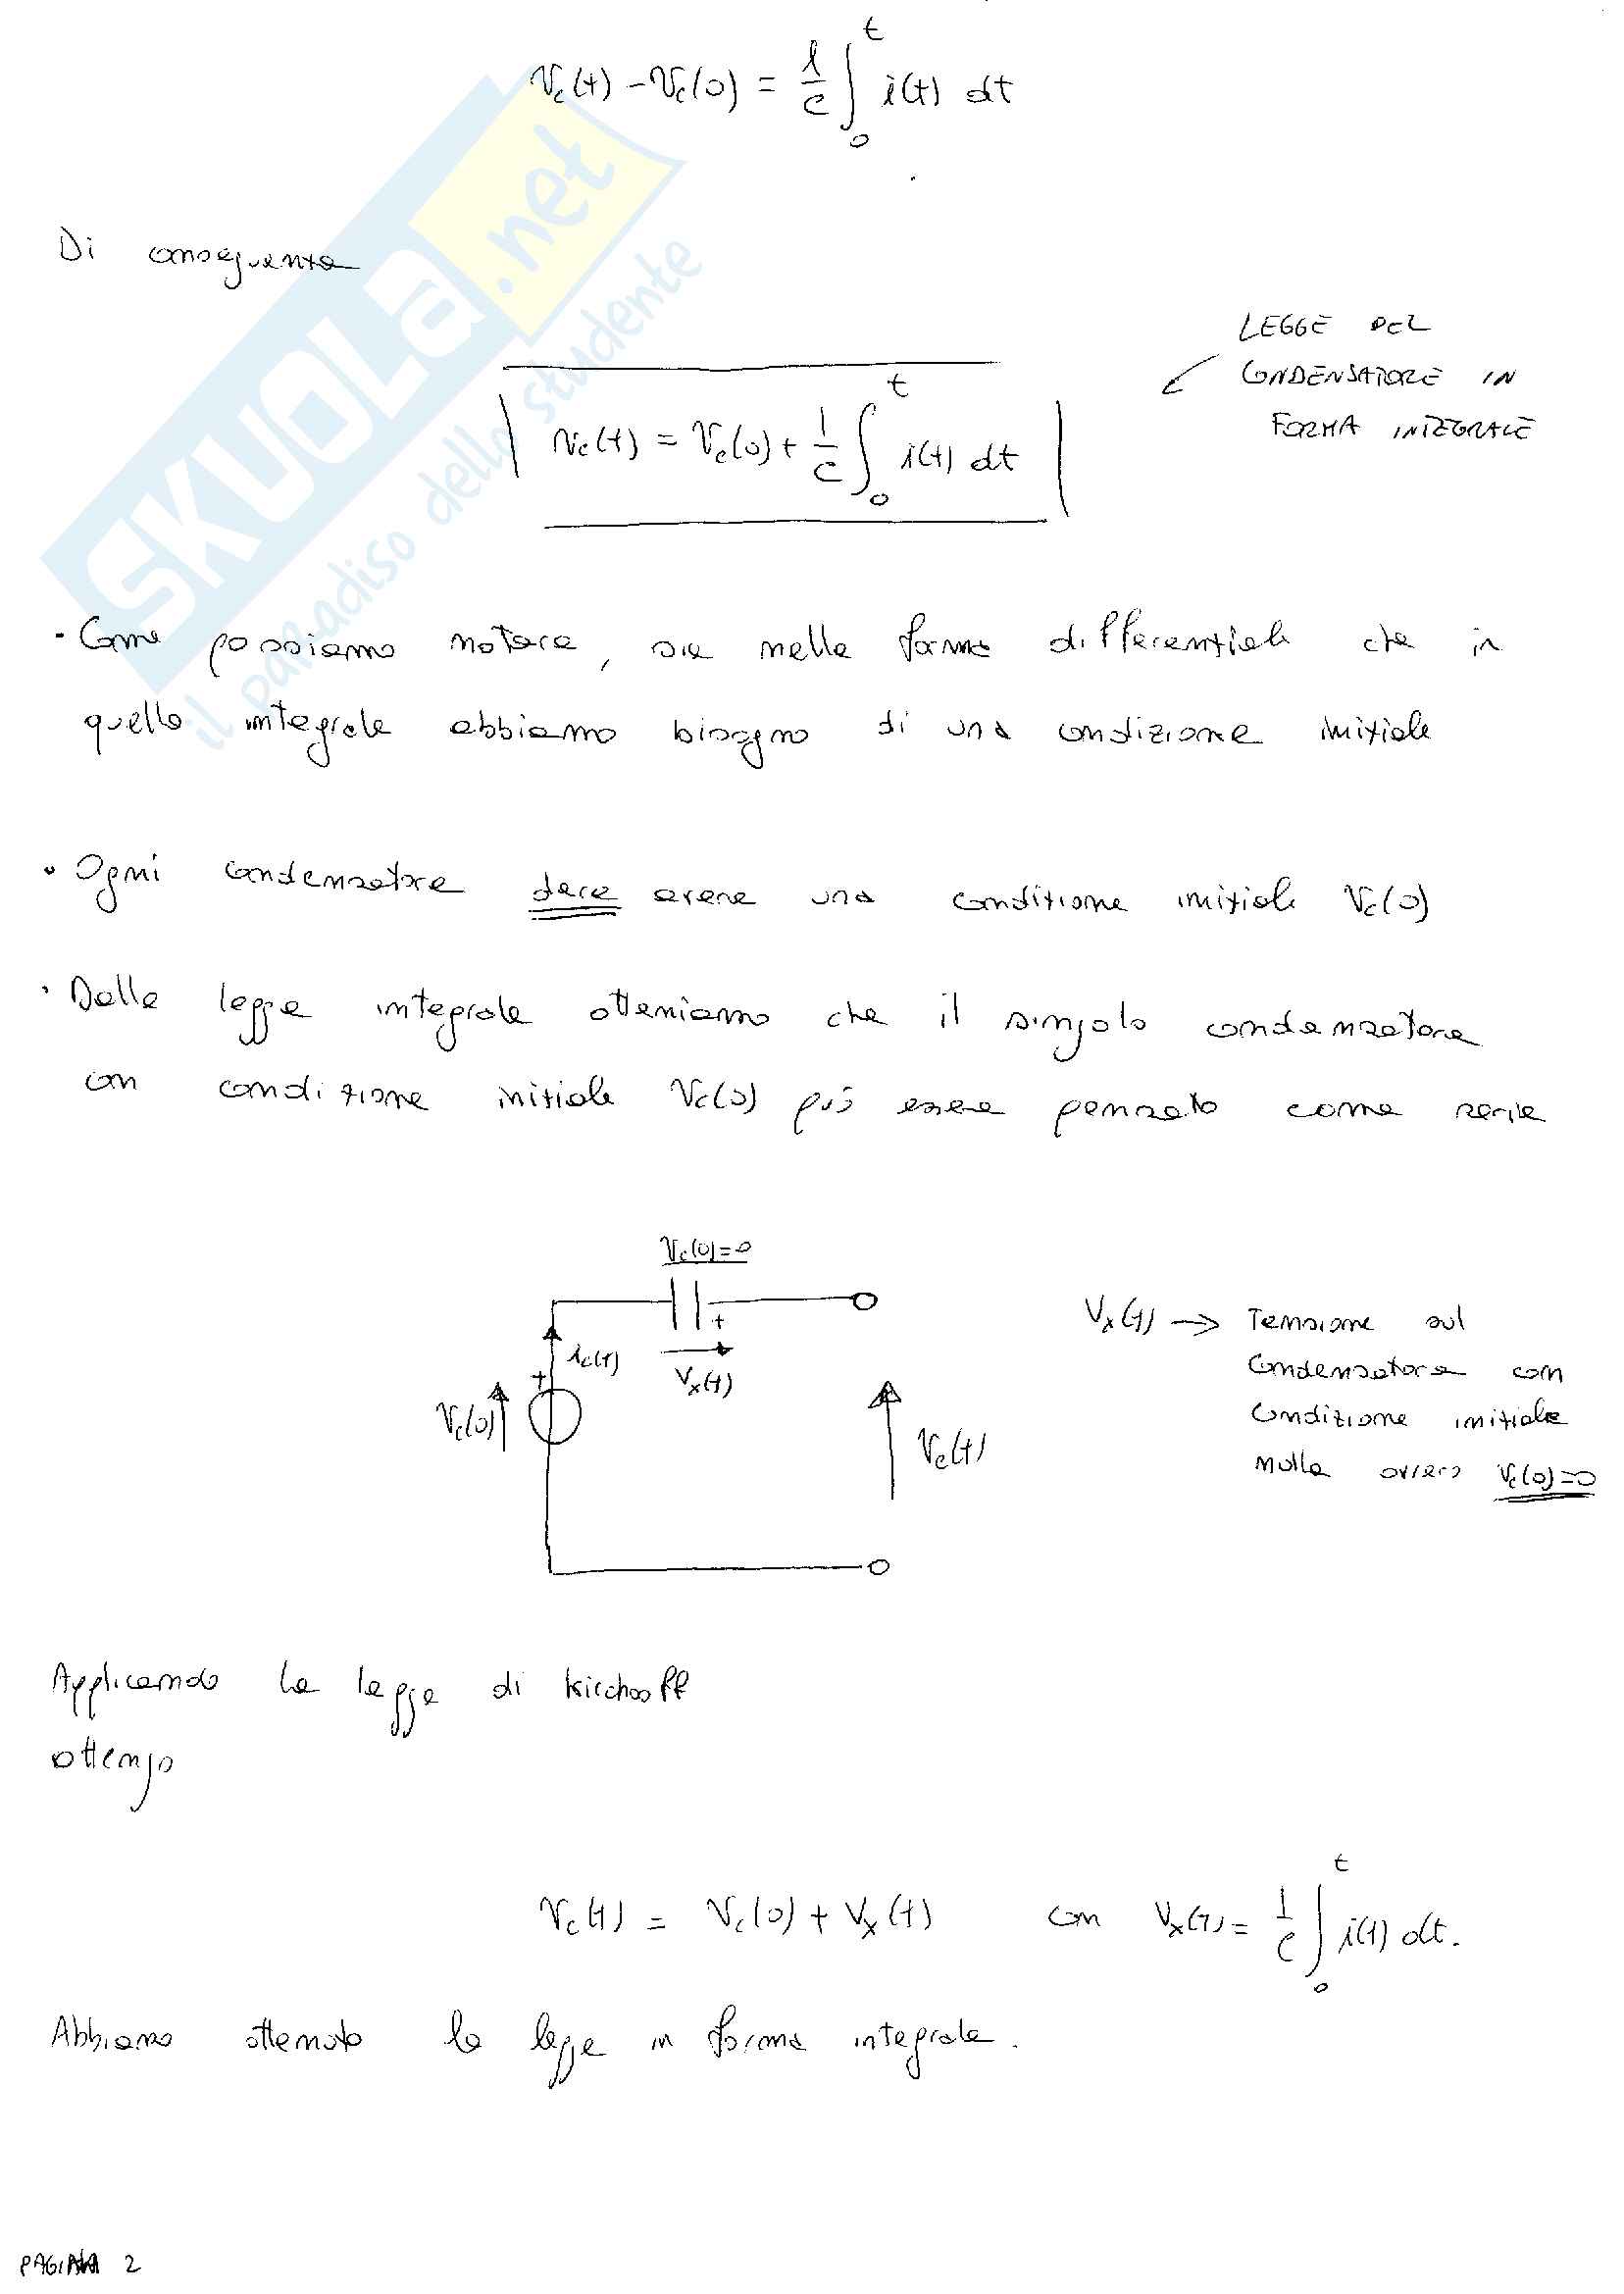 Vc(t) - Vc(0) = 1/C ∫₀ᵗ i(t) dt
Di conseguenza
LEGGE DEL
CONDENSATORE IN
FORMA INTEGRALE
Vc(t) = Vc(0) + 1/C ∫₀ᵗ i(t) dt
SKUOLA.net
il paradiso dello studente
• Come possiamo notare, sia nella forma differenziale che in
quella integrale abbiamo bisogno di una condizione iniziale
• Ogni condensatore deve avere una condizione iniziale Vc(0)
• Dalla legge integrale otteniamo che il singolo condensatore
con condizione iniziale Vc(0) può essere pensato come serie
Vc(0)=0
+
ic(t)
Vx(t)
+
Vc(0)
Vc(t)
Vx(t) → Tensione sul
Condensatore con
Condizione iniziale
nulla ovvero Vc(0)=0
Applicando la legge di Kirchooff
ottengo
Vc(t) = Vc(0) + Vx(t) con Vx(t) = 1/C ∫₀ᵗ i(t) dt.
Abbiamo ottenuto la legge in forma integrale.
PAGINA 2